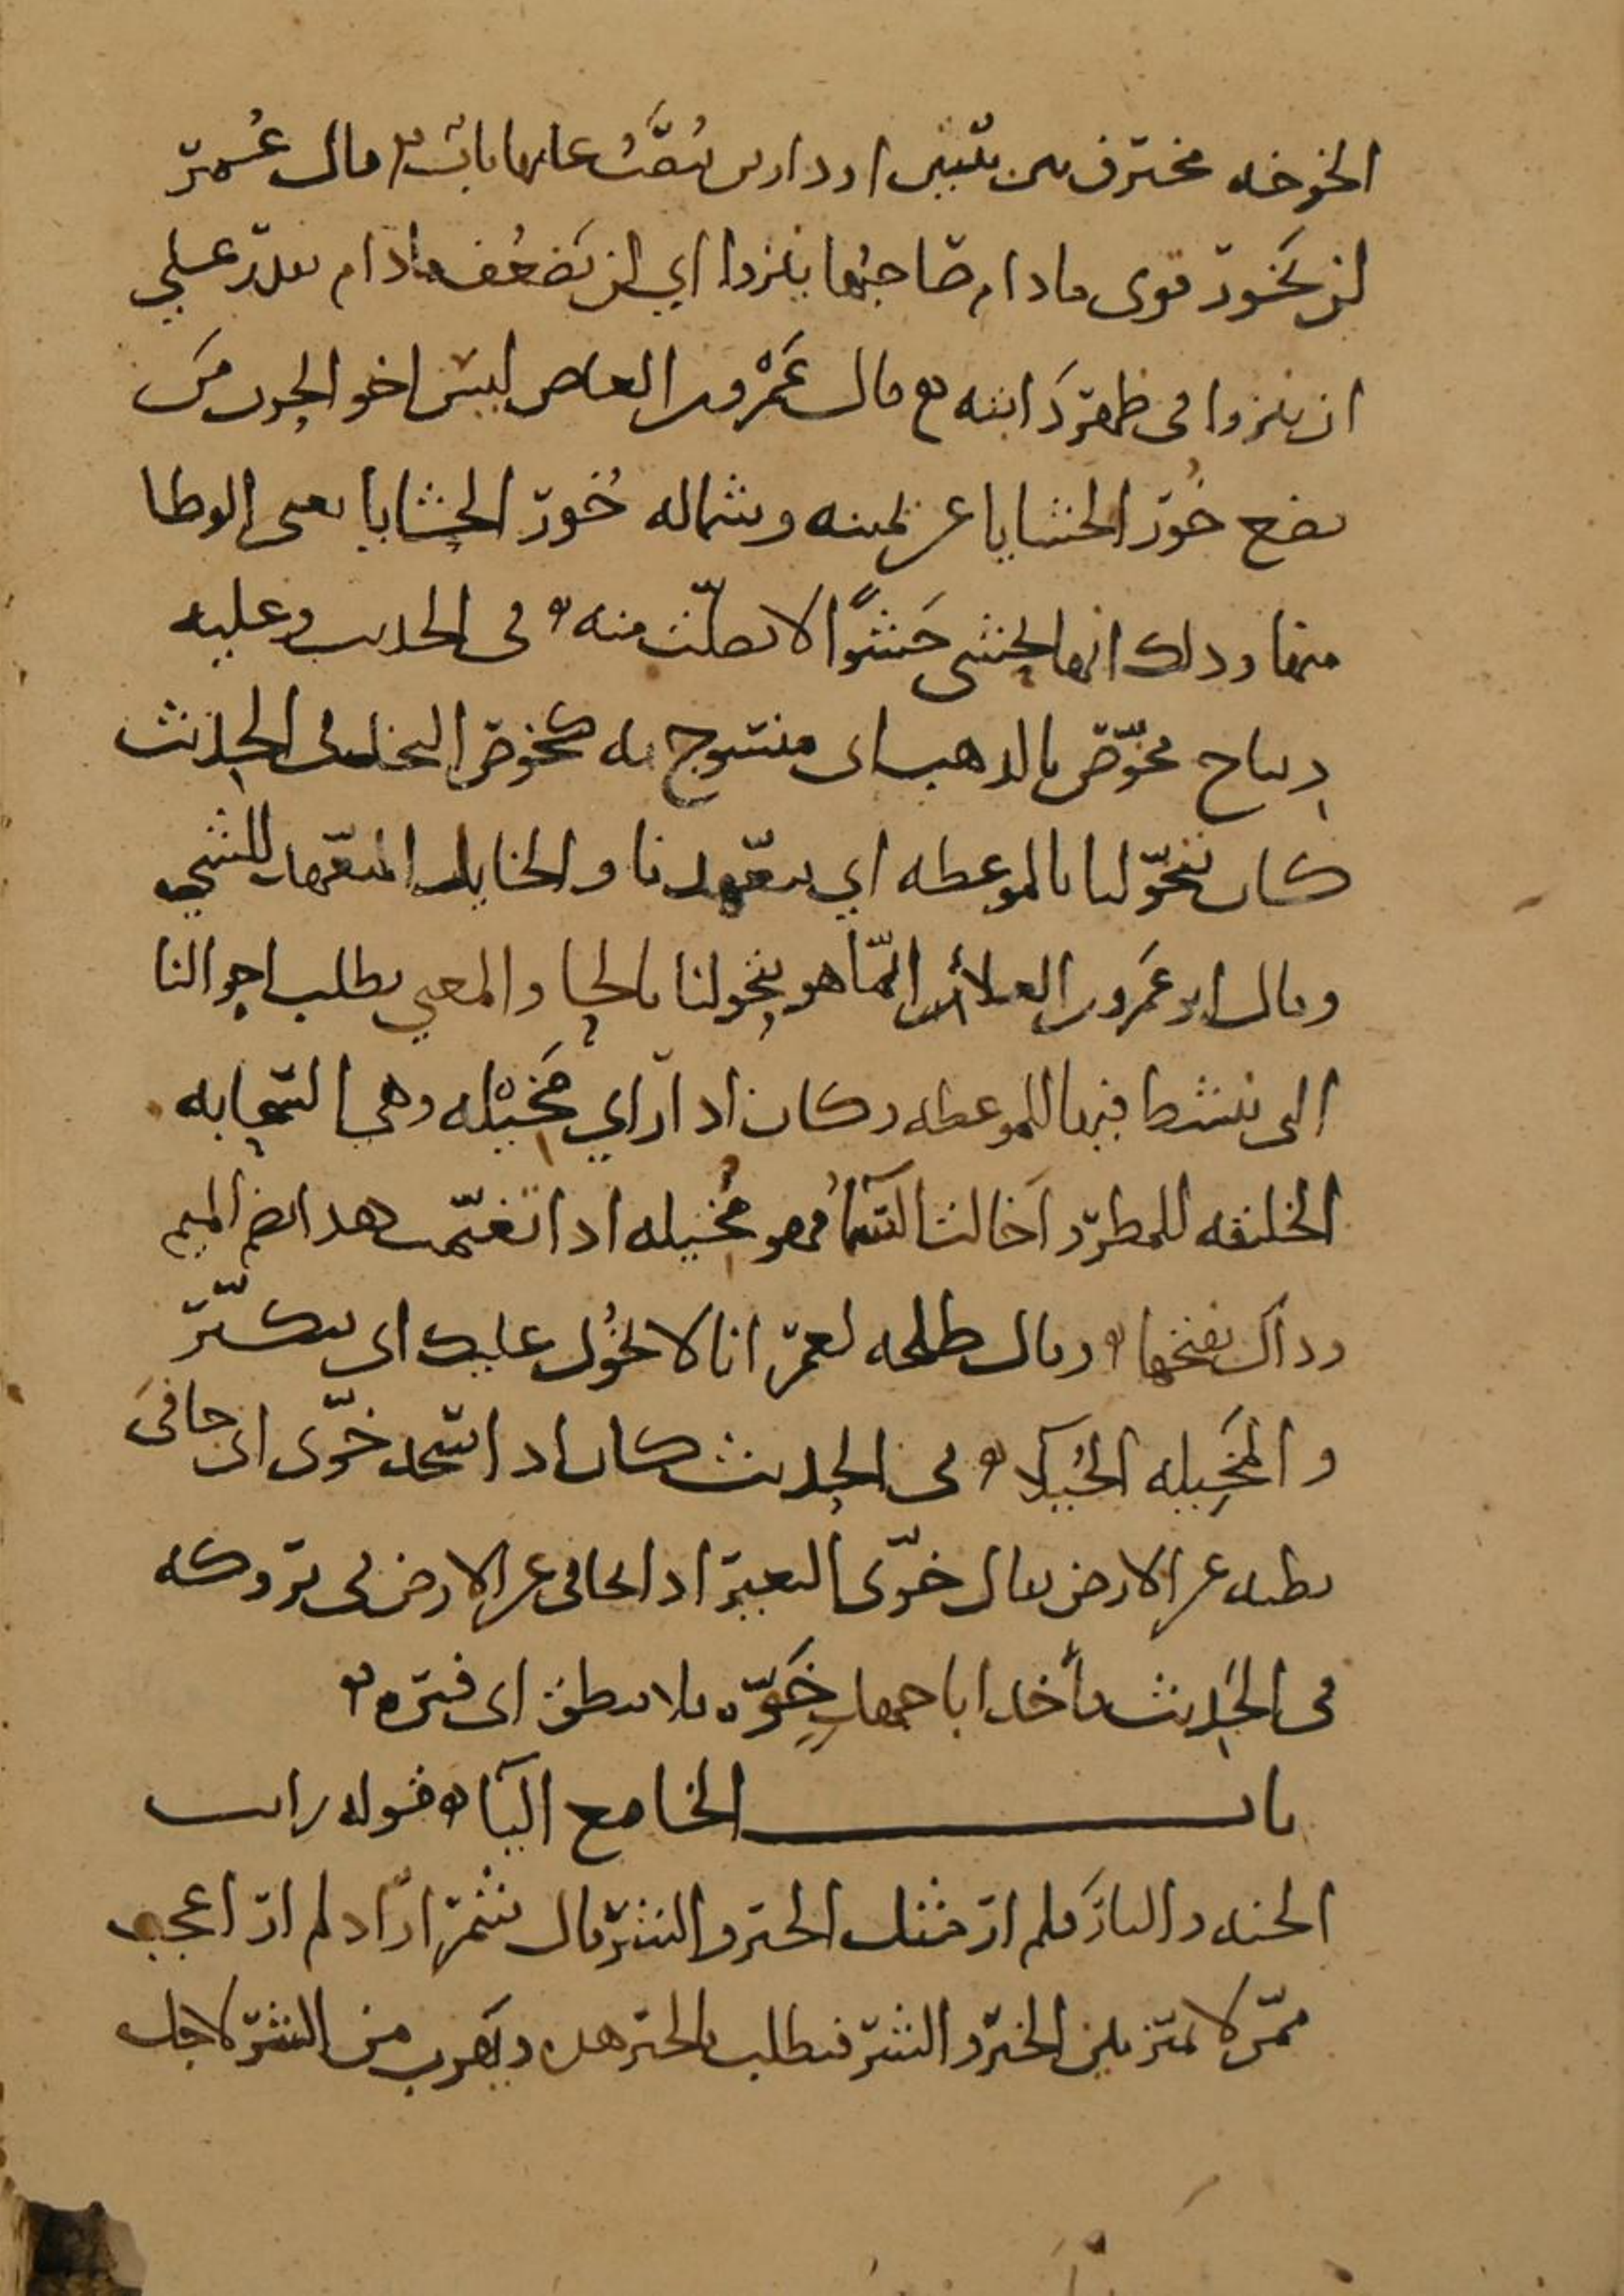 الخوخه مخترق بين بيتين او دارين نُصب عليها باب قال عُمر
لن تخور قوى ما دام صاحبُها ينزوا اي لن يَضعُف ما دام يقدر علي
ان ينزوا فى ظهر دابته قال عَمْرو بن العاص ليس اخو الحرب مَن
يضع خُور الحشايا عن يمينه وشماله خُور الحشايا يعنى الوطا
منها وذلك انها تحشى حَشوًا لا تصلب منه فى الحديث وعليه
ديباج مخوّص بالذهب اى منسوج به كخوص النخل فى الحديث
كان يتخوّلنا بالموعظه اي يتعهدنا والخايل المتعهد للشي
وقال ابو عَمرو بن العلاء انما هو يتحولنا بالحا والمعني يطلب احوالنا
التى ننشط فيها للموعظه وكان اذا راي مَخيْله وهى السحابه
الخليقه للمطر واَخالت السمآءُ فهو مُخيله اذا تغيّمت هذا بضم الميم
وذاك بفتحها وقال طلحه لعمر انا لا نخُول عليك اى نتكبّر
والمَخِيله الخُيَلآ فى الحديث كان اذا سجد خوّى اى جافىَ
بطنه عن الارض يقال خوّى البعير اذا تجافى عن الارض فى بروكه
فى الحديث فأخذ ابا جهل خَوّه فلا ينطق اى فتره
باب الخا مع اليآ قوله رايت
الجنه والنار فلم ار مثل الخير والشر قال شمر اراد لم ار اعجب
ممّن لا يميز بين الخير والشر فيطلب بالخير هذه ويَهرب من الشر لاجل